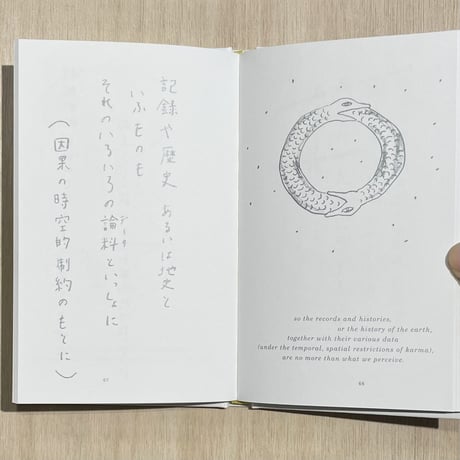 記録や歴史　あるいは地史と
いふものも
それのいろいろの論料といっしょに
データ
(因果の時空的制約のもとに)
67
so the records and histories,
or the history of the earth,
together with their various data
(under the temporal, spatial restrictions of karma),
are no more than what we perceive.
66